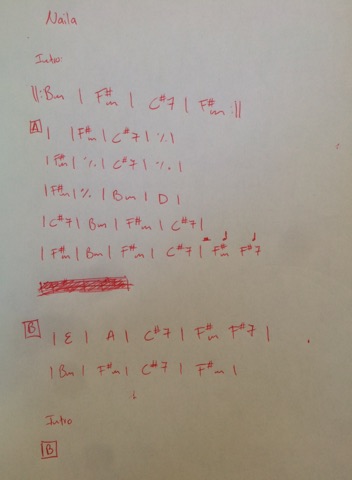 Naila
Intro:
||: Bm | F#m | C#7 | F#m :||
A | | F#m | C#7 | ٪ |
| F#m | ٪ | C#7 | ٪ |
| F#m | ٪ | Bm | D |
| C#7 | Bm | F#m | C#7 |
| F#m | Bm | F#m | C#7 | F#m F#7
B | E | A | C#7 | F#m F#7 |
| Bm | F#m | C#7 | F#m |
Intro
B